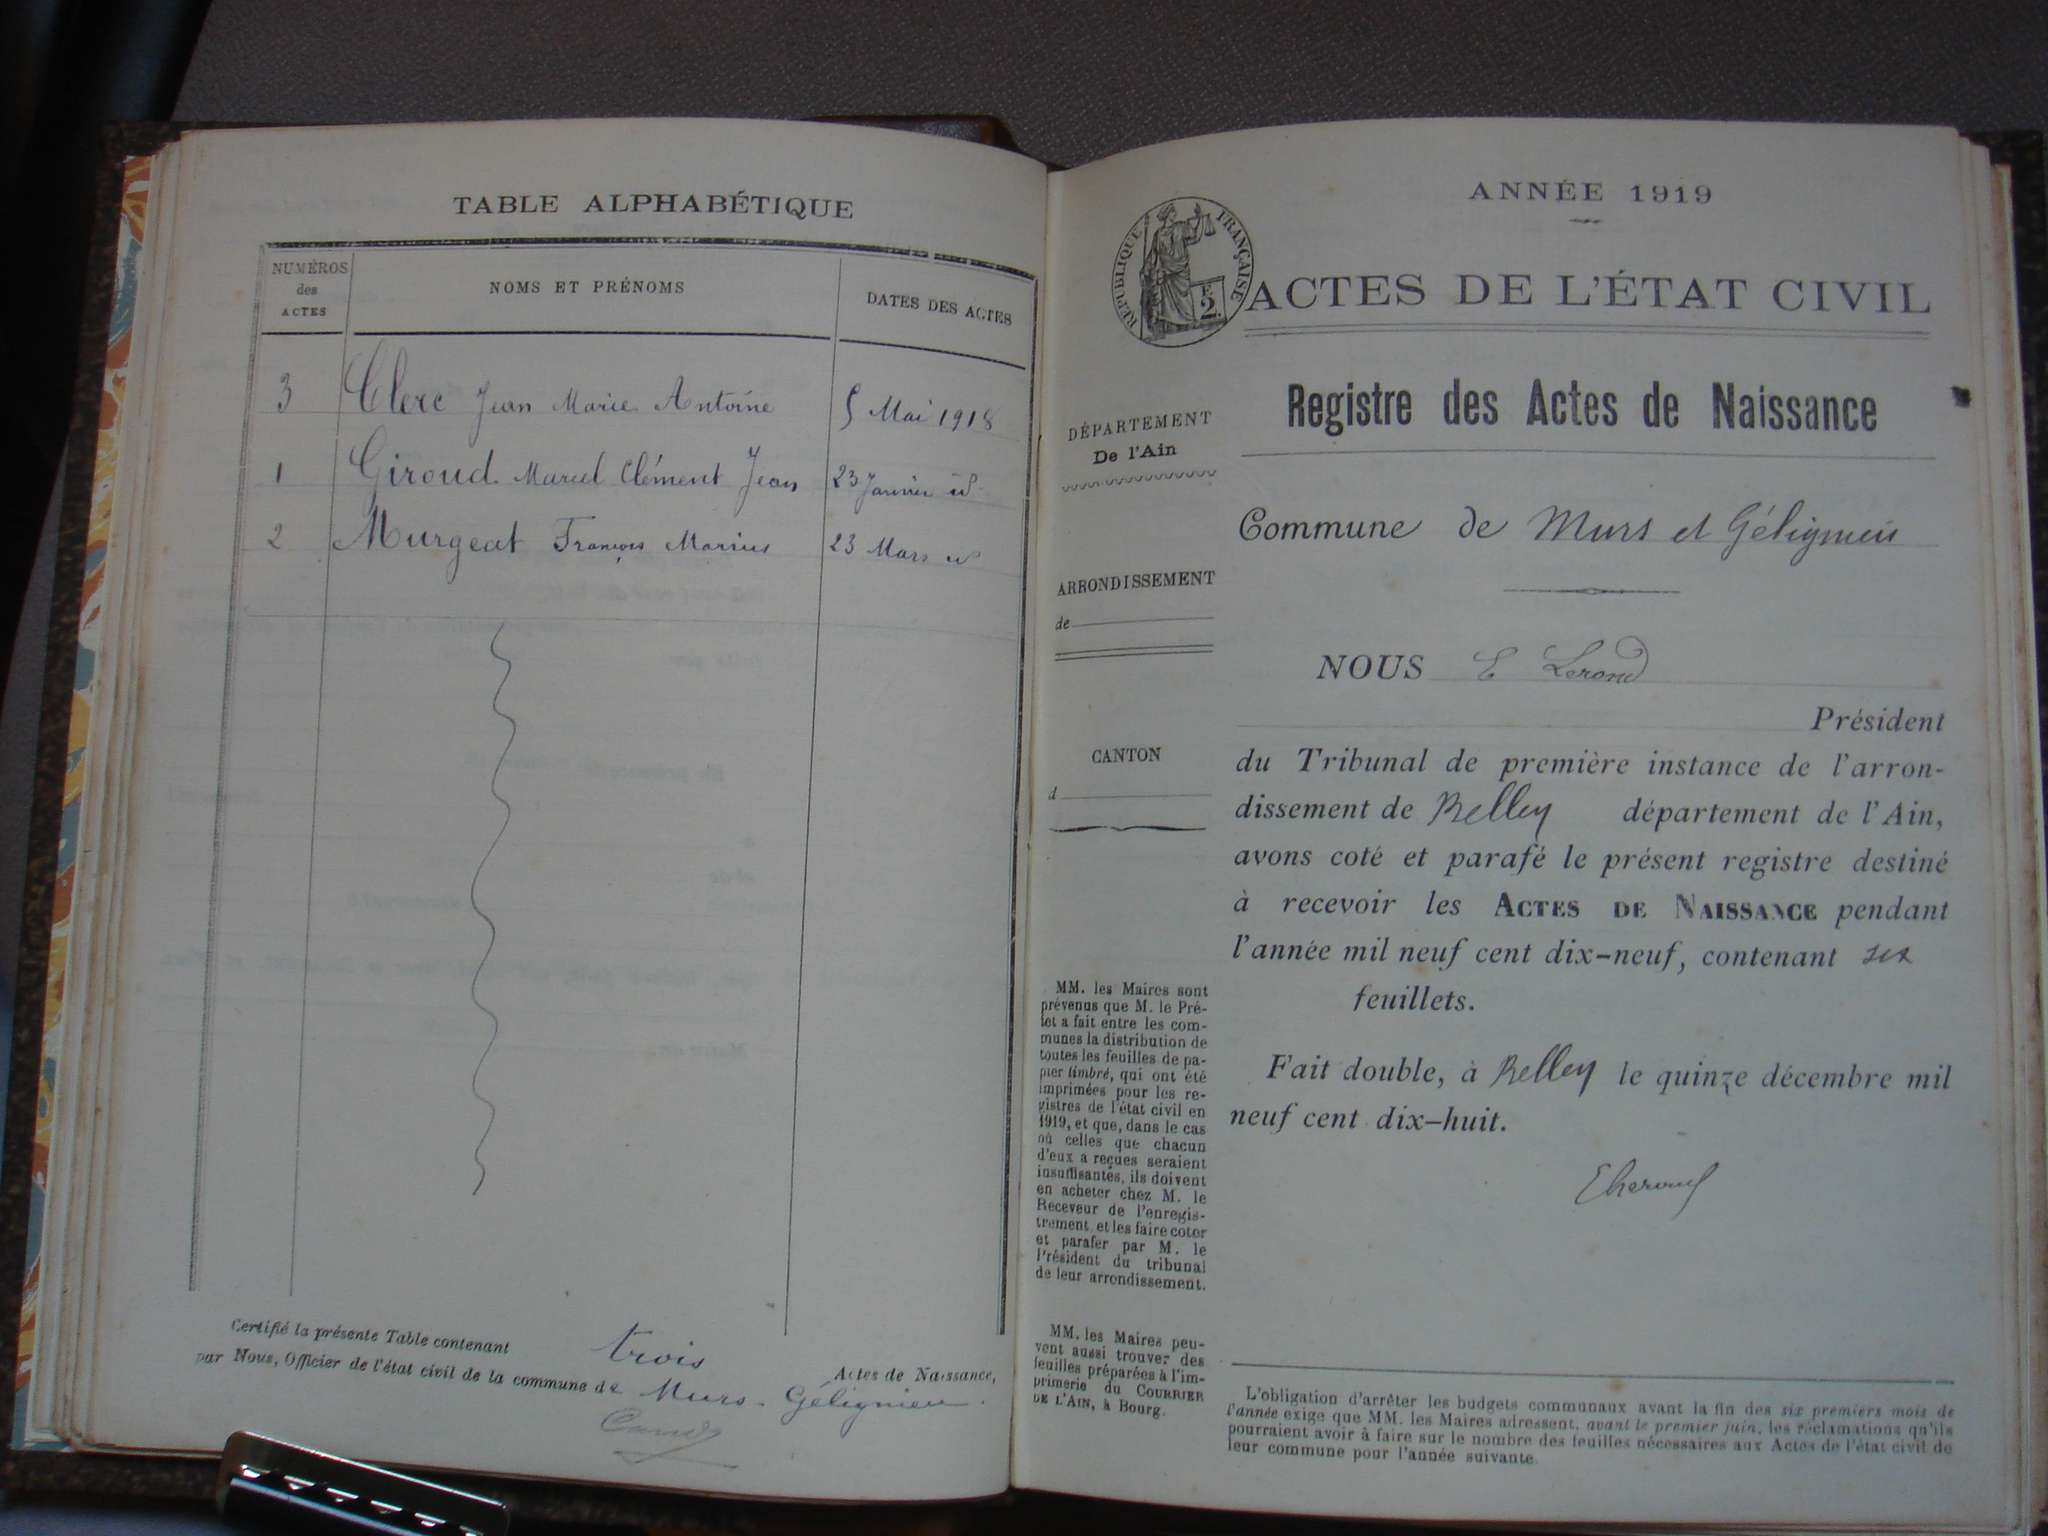 TABLE ALPHABÉTIQUE
NUMÉROS des ACTES
NOMS ET PRÉNOMS
DATES DES ACTES
3 Clerc Jean Marie Antoine 5 Mai 1918
1 Giroud Marcel Clément Jean 23 Janvier id
2 Murgeat François Marius 23 Mars id
Certifié la présente Table contenant trois Actes de Naissance,
par Nous, Officier de l'état civil de la commune de Murs-Gélignieu.
ANNÉE 1919
RÉPUBLIQUE FRANÇAISE
F. 2
ACTES DE L'ÉTAT CIVIL
Registre des Actes de Naissance
DÉPARTEMENT
De l'Ain
Commune de Murs et Gélignieu
ARRONDISSEMENT
de
CANTON
d
NOUS E Lerond
Président
du Tribunal de première instance de l'arron-
dissement de Belley département de l'Ain,
avons coté et parafé le présent registre destiné
à recevoir les ACTES DE NAISSANCE pendant
l'année mil neuf cent dix-neuf, contenant six
feuillets.
Fait double, à Belley le quinze décembre mil
neuf cent dix-huit.
MM. les Maires sont
prévenus que M. le Pré-
fet a fait entre les com-
munes la distribution de
toutes les feuilles de pa-
pier timbré, qui ont été
imprimées pour les re-
gistres de l'état civil en
1919, et que, dans le cas
où celles que chacun
d'eux a reçues seraient
insuffisantes, ils doivent
en acheter chez M. le
Receveur de l'enregis-
trement et les faire coter
et parafer par M. le
Président du tribunal
de leur arrondissement.
MM. les Maires peu-
vent aussi trouver des
feuilles préparées à l'im-
primerie du COURRIER
DE L'AIN, à Bourg.
L'obligation d'arrêter les budgets communaux avant la fin des six premiers mois de
l'année exige que MM. les Maires adressent, avant le premier juin, les réclamations qu'ils
pourraient avoir à faire sur le nombre des feuilles nécessaires aux Actes de l'état civil de
leur commune pour l'année suivante.